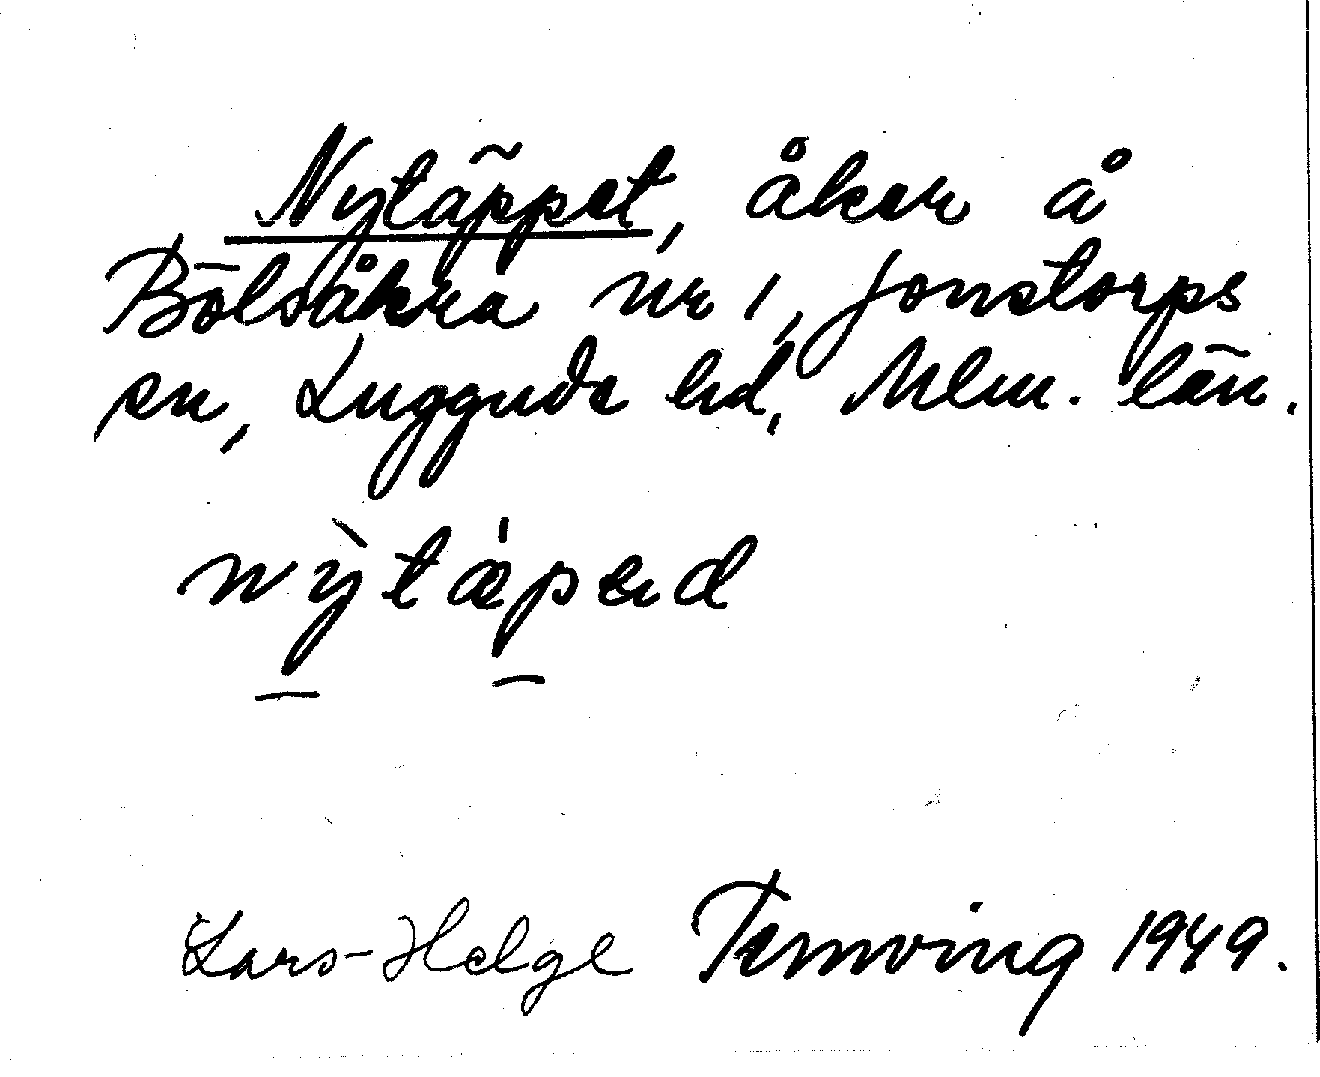 Nytäppet, åker å
Bölsåkra nr 1, Jonstorps
sn, Luggude hd, Mlm. län.
nỳtæ̍pəd
Lars-Helge Ternving 1949.